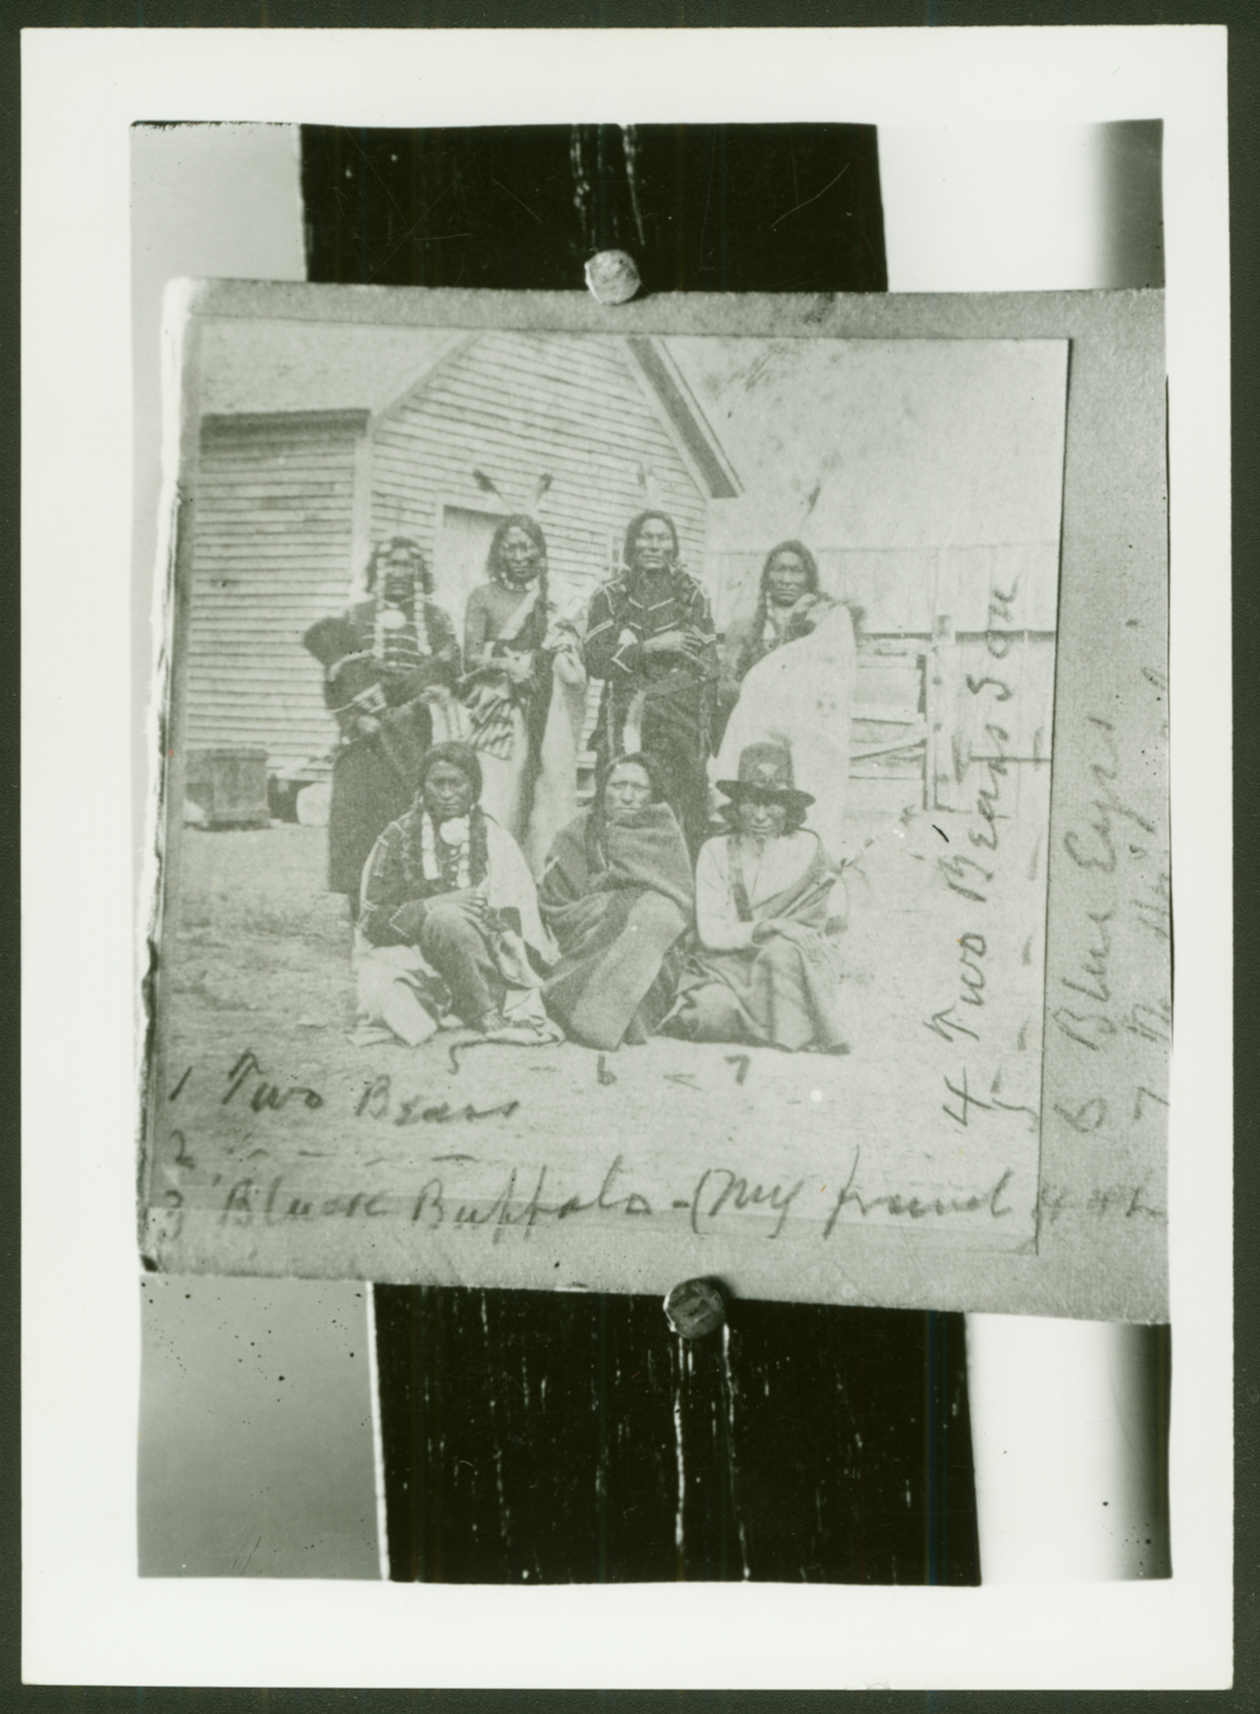 5 - 6 - 7
1 Two Bears
2 - - - -
3 Black Buffalo - (My friend
4 Two Bears Son
5 - - -
6 Blue Eyes
7